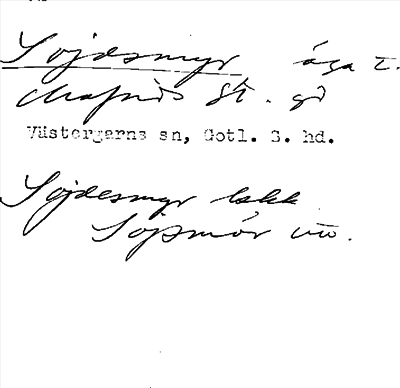 Sojdesmyr äga t.
Mafrids St. gd
Västergarns sn, Gotl. S. hd.
Sojdesmyr bekk.
Sojsmör utt.